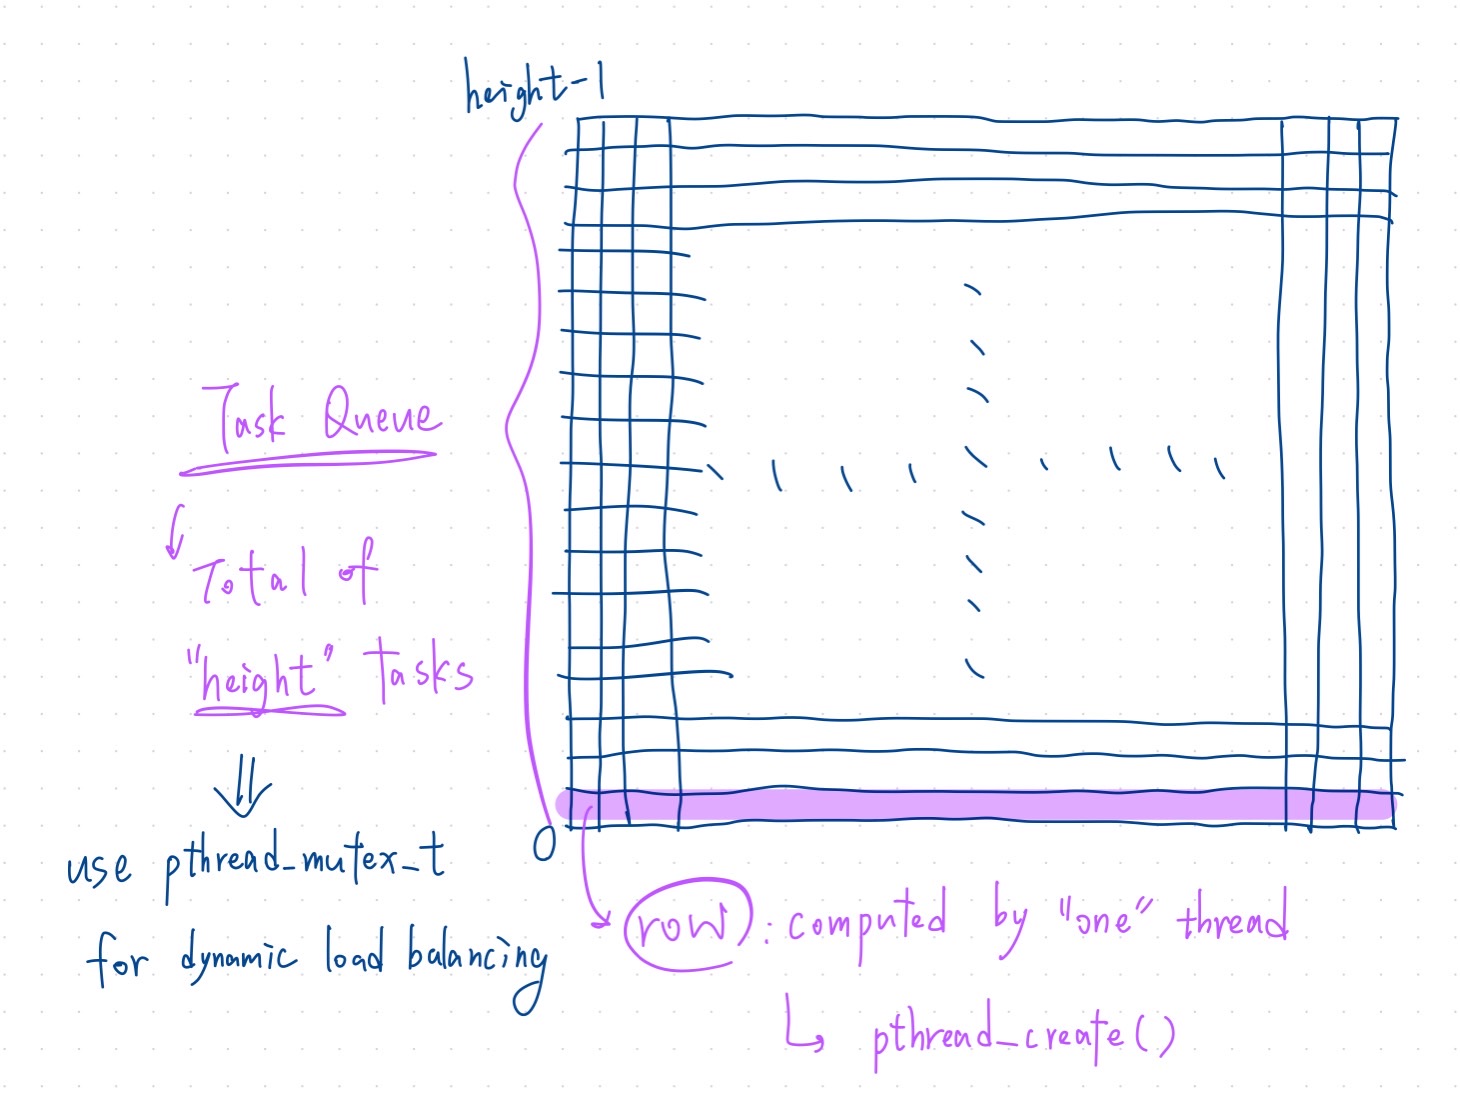 height-1
Task Queue
Total of
"height" Tasks
use pthread_mutex_t
for dynamic load balancing
0
row : computed by "one" thread
pthread_create()